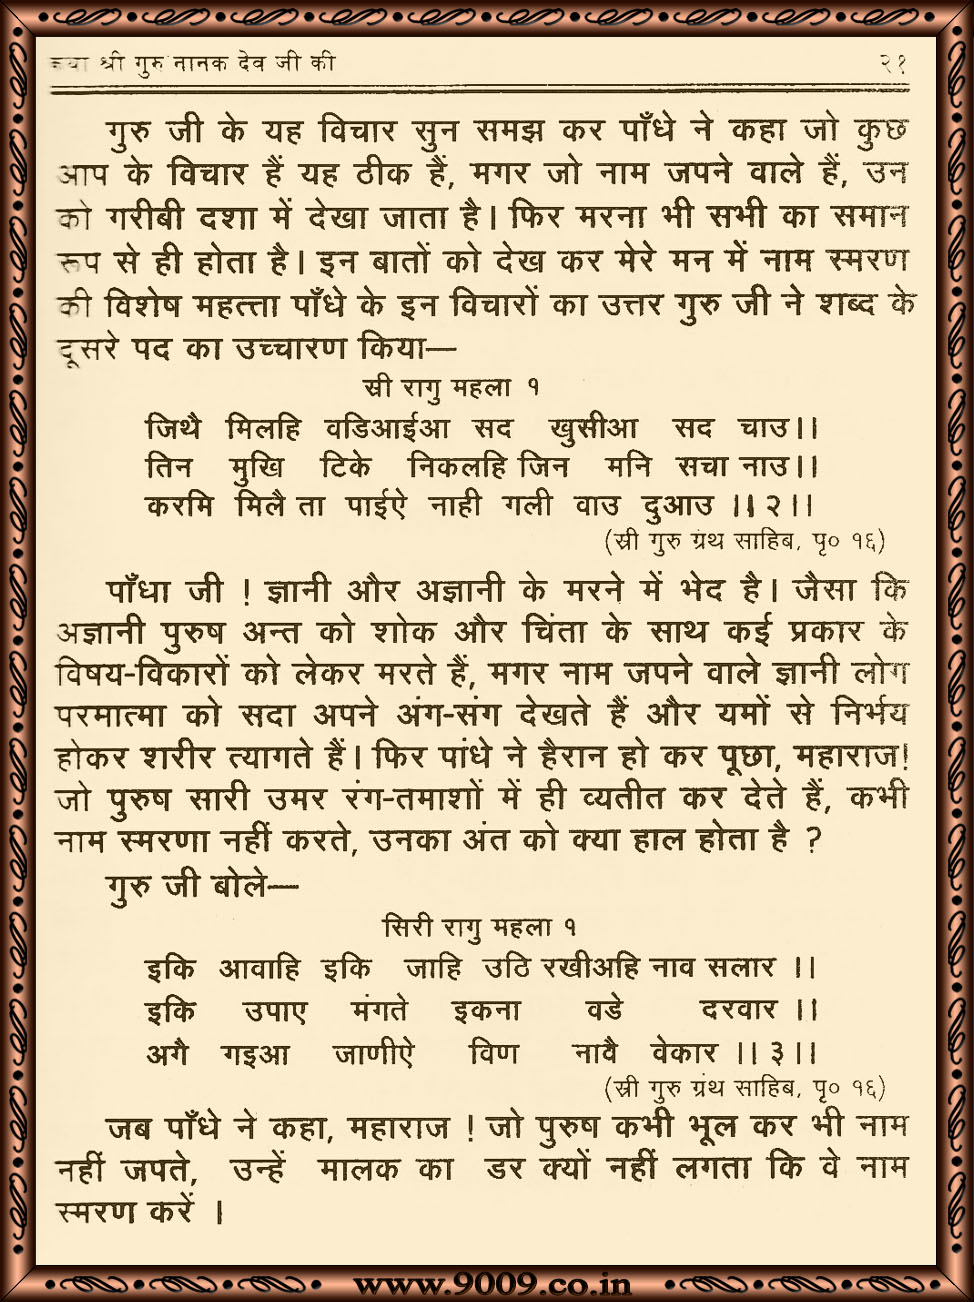 कथा श्री गुरु नानक देव जी की २१
गुरु जी के यह विचार सुन समझ कर पाँधे ने कहा जो कुछ
आप के विचार हैं यह ठीक हैं, मगर जो नाम जपने वाले हैं, उन
को गरीबी दशा में देखा जाता है। फिर मरना भी सभी का समान
रूप से ही होता है। इन बातों को देख कर मेरे मन में नाम स्मरण
की विशेष महत्ता पाँधे के इन विचारों का उत्तर गुरु जी ने शब्द के
दूसरे पद का उच्चारण किया—
स्री रागु महला १
जिथै मिलहि वडिआईआ सद खुसीआ सद चाउ।।
तिन मुखि टिके निकलहि जिन मनि सचा नाउ।।
करमि मिलै ता पाईऐ नाही गली वाउ दुआउ ।।२।।
(स्री गुरु ग्रंथ साहिब, पृ० १६)
पाँधा जी ! ज्ञानी और अज्ञानी के मरने में भेद है। जैसा कि
अज्ञानी पुरुष अन्त को शोक और चिंता के साथ कई प्रकार के
विषय-विकारों को लेकर मरते हैं, मगर नाम जपने वाले ज्ञानी लोग
परमात्मा को सदा अपने अंग-संग देखते हैं और यमों से निर्भय
होकर शरीर त्यागते हैं। फिर पांधे ने हैरान हो कर पूछा, महाराज!
जो पुरुष सारी उमर रंग-तमाशों में ही व्यतीत कर देते हैं, कभी
नाम स्मरणा नहीं करते, उनका अंत को क्या हाल होता है ?
गुरु जी बोले—
सिरी रागु महला १
इकि आवाहि इकि जाहि उठि रखीअहि नाव सलार ।।
इकि उपाए मंगते इकना वडे दरवार ।।
अगै गइआ जाणीऐ विण नावै वेकार ।।३।।
(स्री गुरु ग्रंथ साहिब, पृ० १६)
जब पाँधे ने कहा, महाराज ! जो पुरुष कभी भूल कर भी नाम
नहीं जपते, उन्हें मालक का डर क्यों नहीं लगता कि वे नाम
स्मरण करें ।
www.9009.co.in